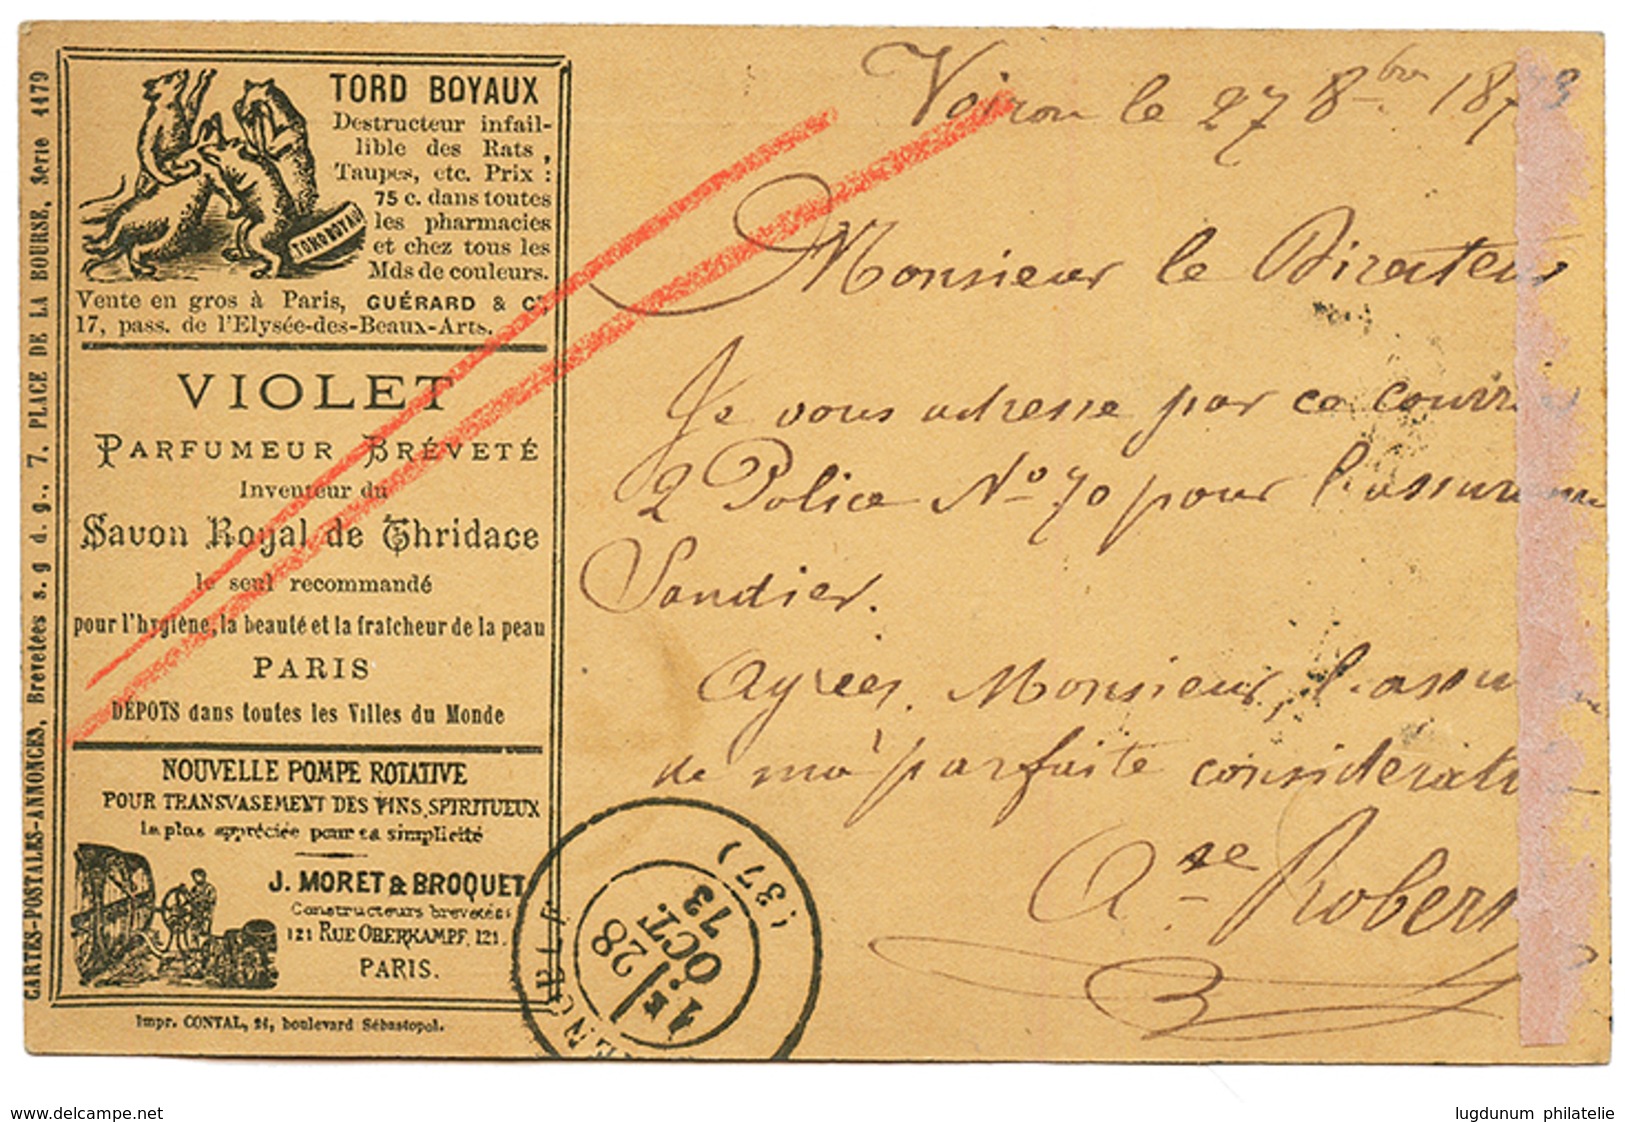 CARTES-POSTALES-ANNONCES, Brevetées s. g d. g., 7, PLACE DE LA BOURSE, Serie 1179
TORD BOYAUX
Destructeur infail-
lible des Rats,
Taupes, etc. Prix :
75 c. dans toutes
les pharmacies
et chez tous les
Mds de couleurs.
TORD BOYAU
Vente en gros à Paris, GUÉRARD & Cie,
17, pass. de l'Elysée-des-Beaux-Arts.
VIOLET
PARFUMEUR BRÉVETÉ
Inventeur du
Savon Royal de Thridace
le seul recommandé
pour l'hygiène, la beauté et la fraîcheur de la peau
PARIS
DÉPOTS dans toutes les Villes du Monde
NOUVELLE POMPE ROTATIVE
POUR TRANSVASEMENT DES VINS, SPIRITUEUX
la plus appréciée pour sa simplicité
J. MORET & BROQUET
Constructeurs brevetés
121 RUE OBERKAMPF, 121.
PARIS.
Impr. CONTAL, 24, boulevard Sébastopol.
Voiron le 27 8bre 1873
Monsieur le Directeur
Je vous adresse par ce courri
2 Police No 70 pour l'assurance
Sandier.
Agréez, Monsieur, l'assu
de ma parfaite considérati
Robert
1E 28
OCT.
73
(37)
www.delcampe.net
lugdunum philatelie